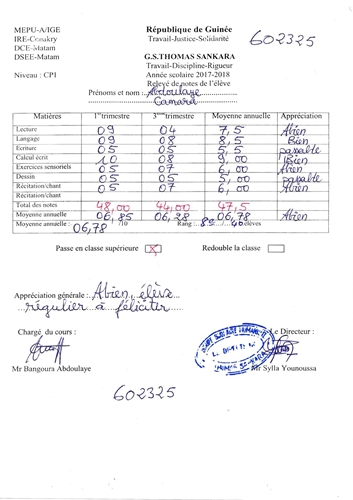 MEPU-A/IGE
IRE-Conakry
DCE-Matam
DSEE-Matam
Niveau : CP1
République de Guinée
Travail-Justice-Solidarité
G.S.THOMAS SANKARA
Travail-Discipline-Rigueur
Année scolaire 2017-2018
Relevé de notes de l'élève
602325
Prénoms et nom : Abdoulaye
Camara
Matières 1er trimestre 3ème trimestre Moyenne annuelle Appréciation
Lecture 09 04 7,5 Abien
Langage 09 08 8,5 Bien
Ecriture 05 05 5,5 passable
Calcul écrit 10 08 9,00 Bien
Exercices sensoriels 05 07 6,00 Abien
Dessin 05 05 5,00 passable
Récitation/chant 05 07 6,00 Abien
Récitation/chant
Total des notes 48,00 44,00 47,5
Moyenne annuelle 06,85 06,28 06,78 Abien
Moyenne annuelle : 06,78 /10 Rang : 8e / 40 élèves
Passe en classe supérieure X Redouble la classe
Appréciation générale : Abien, élève
régulier à féliciter
Chargé du cours : Le Directeur :
Mr Bangoura Abdoulaye Mr Sylla Younoussa
602325